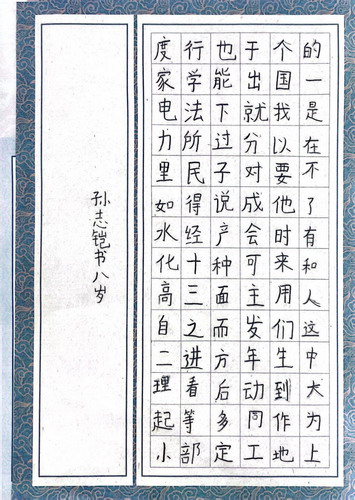 的一是在不了有和人这中大为上
个国我以要他时来用们生到作地
于出就分对成会可主发年动同工
也能下过子说产种面而方后多定
行学法所民得经十三之进看等部
度家电力里如水化高自二理起小
孙志铠书八岁